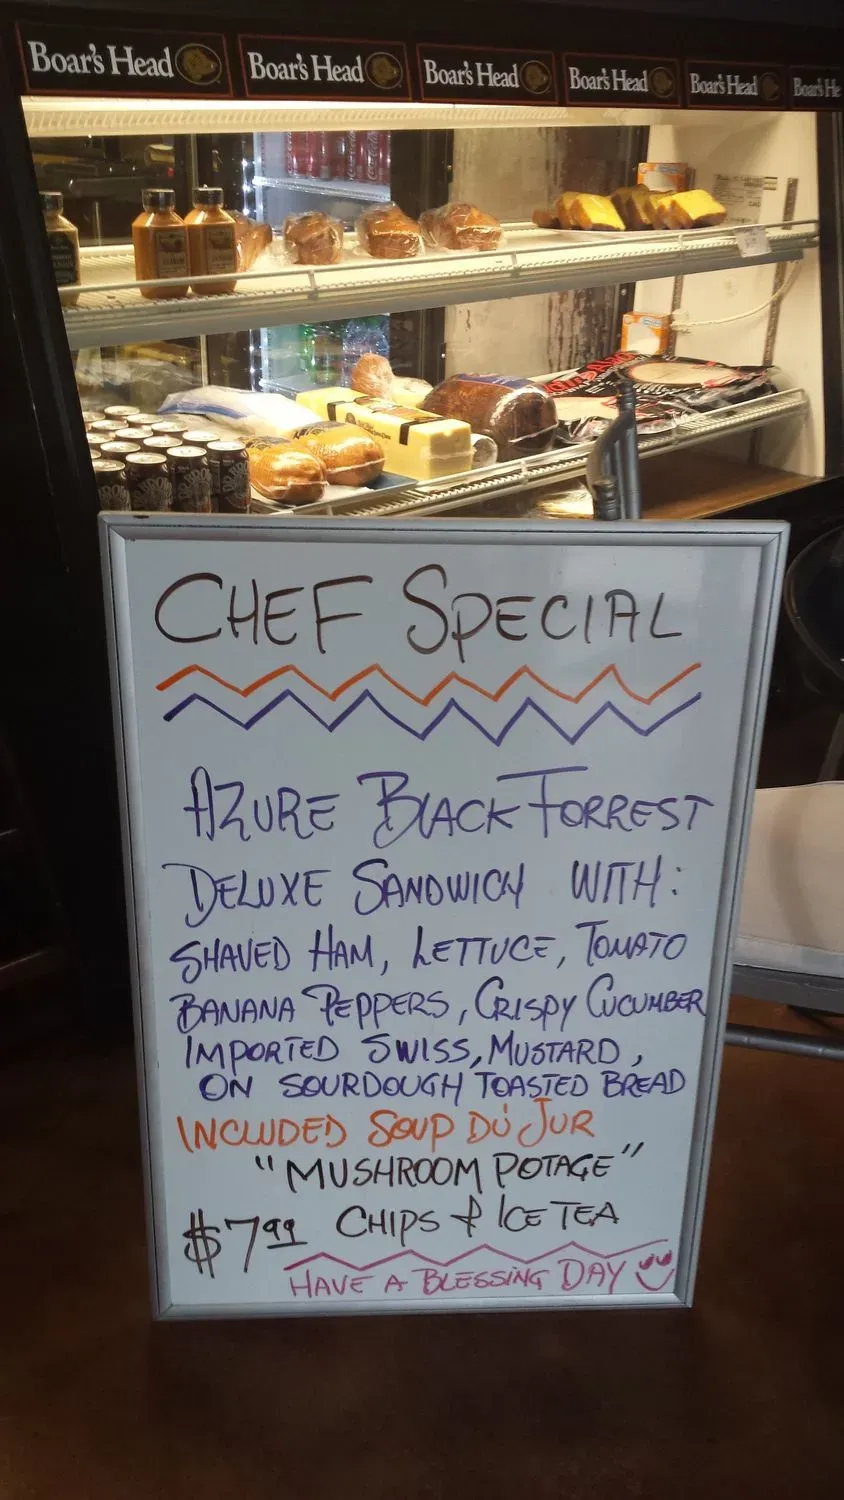 Boar's Head Boar's Head Boar's Head Boar's Head Boar's Head Boar's He
CHEF SPECIAL
AZURE BLACK FORREST
DELUXE SANDWICH WITH:
SHAVED HAM, LETTUCE, TOMATO
BANANA PEPPERS, CRISPY CUCUMBER
IMPORTED SWISS, MUSTARD,
ON SOURDOUGH TOASTED BREAD
INCLUDED SOUP DU JUR
"MUSHROOM POTAGE"
$7.99 CHIPS & ICE TEA
HAVE A BLESSING DAY